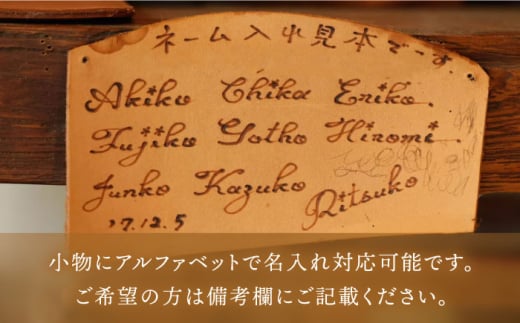 ネーム入れ見本です。
Akiko Chika Eriko.
Fujiko Gotho Hiromi.
Junko Kazuko Ritsuko
'7.12.5
小物にアルファベットで名入れ対応可能です。
ご希望の方は備考欄にご記載ください。